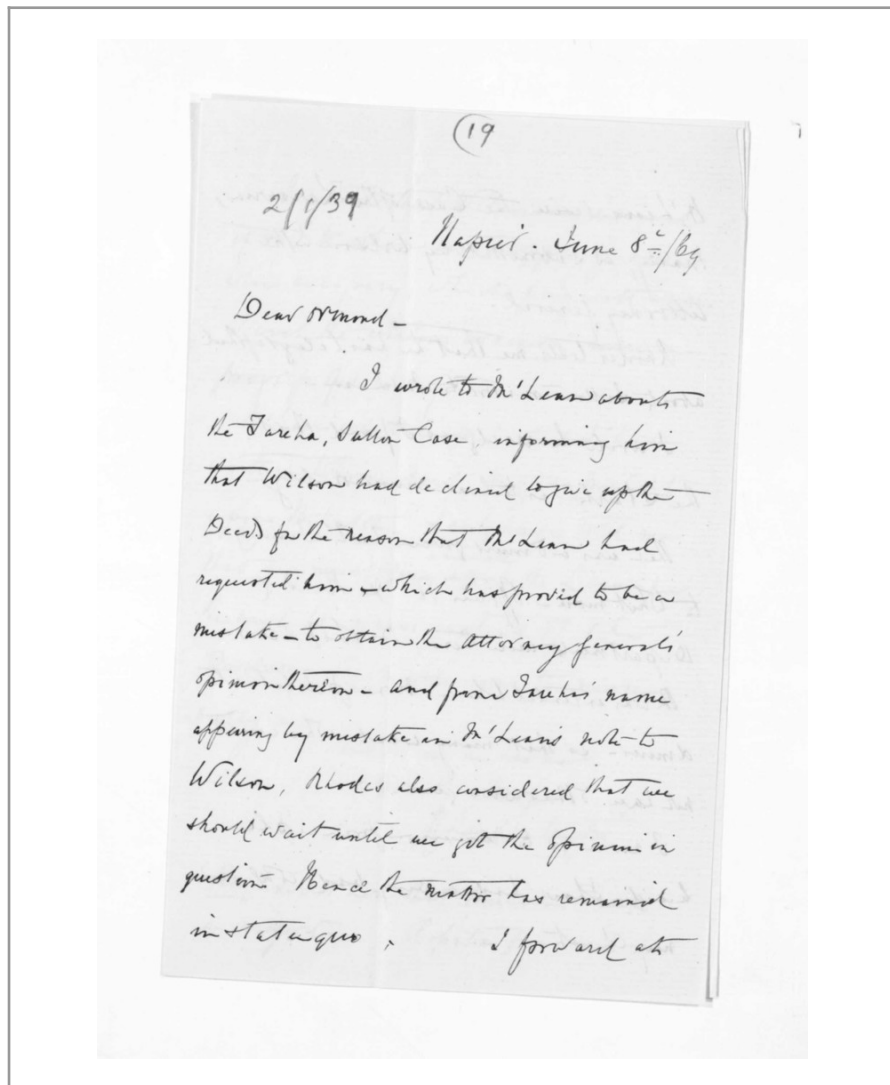 19
2/1/39
Napier. June 8th/69
Dear Ormond -
I wrote to McLean about
the Tareha, Sutton Case, informing him
that Wilson had declined to give up the
Deeds for the reason that McLean had
requested him - which has proved to be a
mistake - to obtain the Attorney General's
opinion thereon - and from Tareha's name
appearing by mistake in McLean's note to
Wilson, Rhodes also considered that we
should wait until we got the opinion in
question - Hence the matter has remained
in statu quo. I forward